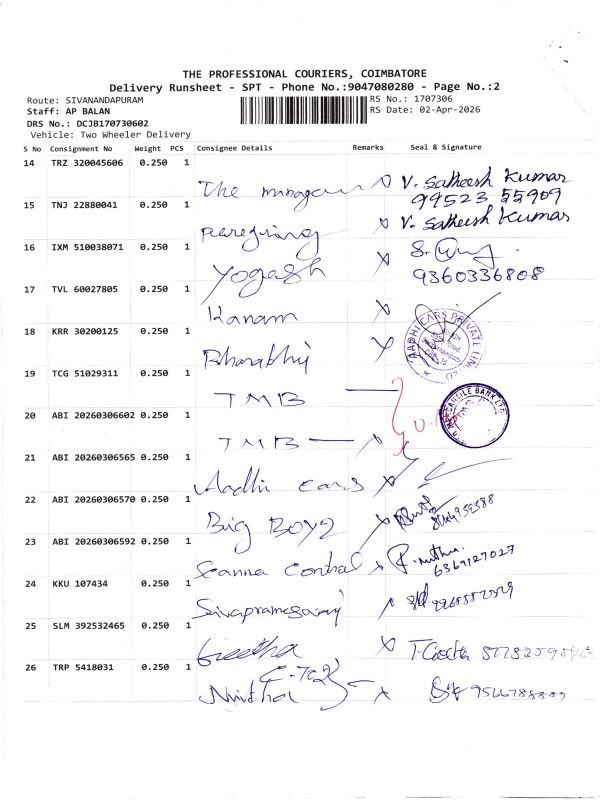 THE PROFESSIONAL COURIERS, COIMBATORE
Delivery Runsheet - SPT - Phone No.:9047080280 - Page No.:2
Route: SIVANANDAPURAM
RS No.: 1707306
Staff: AP BALAN
RS Date: 02-Apr-2026
DRS No.: DCJB170730602
Vehicle: Two Wheeler Delivery
S No Consignment No Weight PCS Consignee Details Remarks Seal & Signature
14 TRZ 320045606 0.250 1
The manager V. Satheesh Kumar
99523 55909
15 TNJ 22880041 0.250 1
V. Satheesh Kumar
16 IXM 510038071 0.250 1
Yogash
9360336808
17 TVL 60027805 0.250 1
Kanam
18 KRR 30200125 0.250 1
Bharathi
AADHI CARS PRIVATE LIMITED
19 TCG 51029311 0.250 1
TMB
20 ABI 20260306602 0.250 1
TMB
MERCANTILE BANK LTD
21 ABI 20260306565 0.250 1
Aadhi cars
22 ABI 20260306570 0.250 1
Big Boyz
23 ABI 20260306592 0.250 1
6369127027
24 KKU 107434 0.250 1
25 SLM 392532465 0.250 1
Geetha
26 TRP 5418031 0.250 1
Nivetha